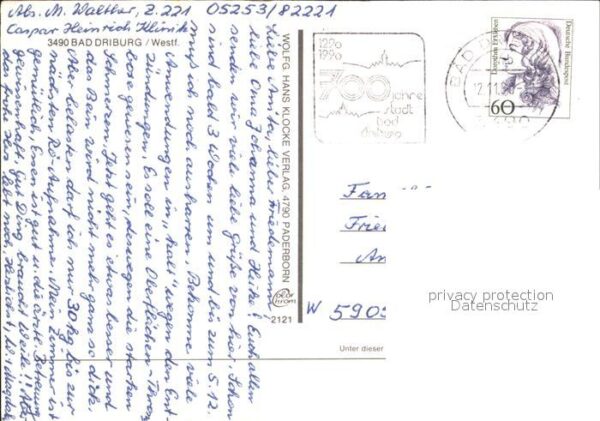 Abs. M. Walther, Z. 221 05253/82221
Caspar Heinrich Klinik
3490 BAD DRIBURG / Westf.
Liebe Anita, lieber Friedemann
liebe Oma Johanna und Heike! Euch allen
senden wir viele liebe Grüße von hier. Schon
sind bald 3 Wochen um und bis zum 5.12.
muß ich noch ausharren. Bekomme viele
Anwendungen in „kalt" wegen den Ent-
zündungen. Es soll eine Oberflächen Throm
bose gewesen sein, deswegen die starken
Schmerzen. Jetzt geht es etwas besser und
das Bein wird nicht mehr ganz so dick.
Aber belasten darf ich nur 30 kg bis zur
nächsten Rö-Aufnahme. Mein Zimmer ist
gemütlich, Essen ist gut u. die ärztl. Betreuung
Gut Ding braucht Weile!!
Herzlichst,
WOLFG. HANS KLOCKE VERLAG, 4790 PADERBORN
2121
1290
1990
700 Jahre
Stadt
Bad
Driburg
BAD
12.11.90
3490
Deutsche Bundespost
60
Fam
W 5905
privacy protection
Datenschutz
Unter dieser